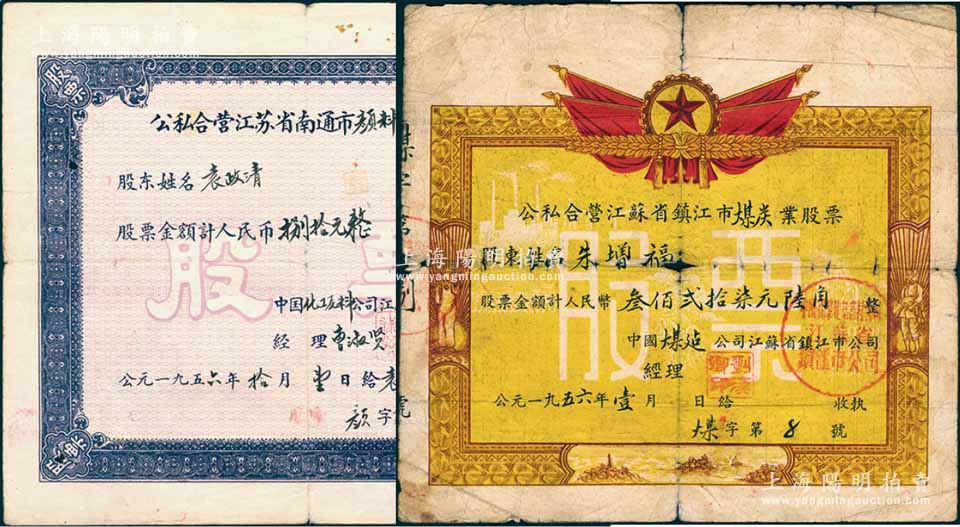 上海陽明拍賣
www.yangmingauction.com
股票
公私合营江苏省南通市顏料
股东姓名 袁政清
股票金額計人民币 捌拾元整
股
中国化工原料公司江
经理 曹淑贤
公元一九五六年 拾月 日给
顏字
號
股票
公私合营江蘇省鎮江市煤炭業股票
股東姓名 朱增福
股票金額計人民幣 叁佰弍拾柒元陸角 整
中國煤炭公司江蘇省鎮江市公司
經理
公元一九五六年壹月 日給 收执
煤字第8號
股票
江蘇省
鎮江市公司
上海陽明拍賣
www.yangmingauction.com
上海陽明拍賣
www.yangmingauction.com